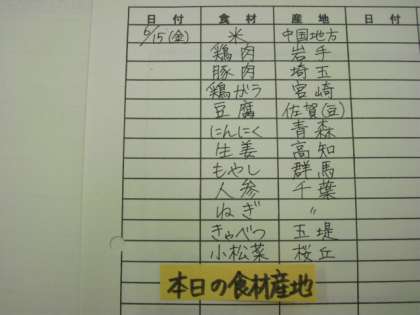 日付 食材 産地 日付
5/15(金) 米 中国地方
鶏肉 岩手
豚肉 埼玉
鶏ガラ 宮崎
豆腐 佐賀(豆)
にんにく 青森
生姜 高知
もやし 群馬
人参 千葉
ねぎ 〃
きゃべつ 玉堤
小松菜 桜丘
本日の食材産地